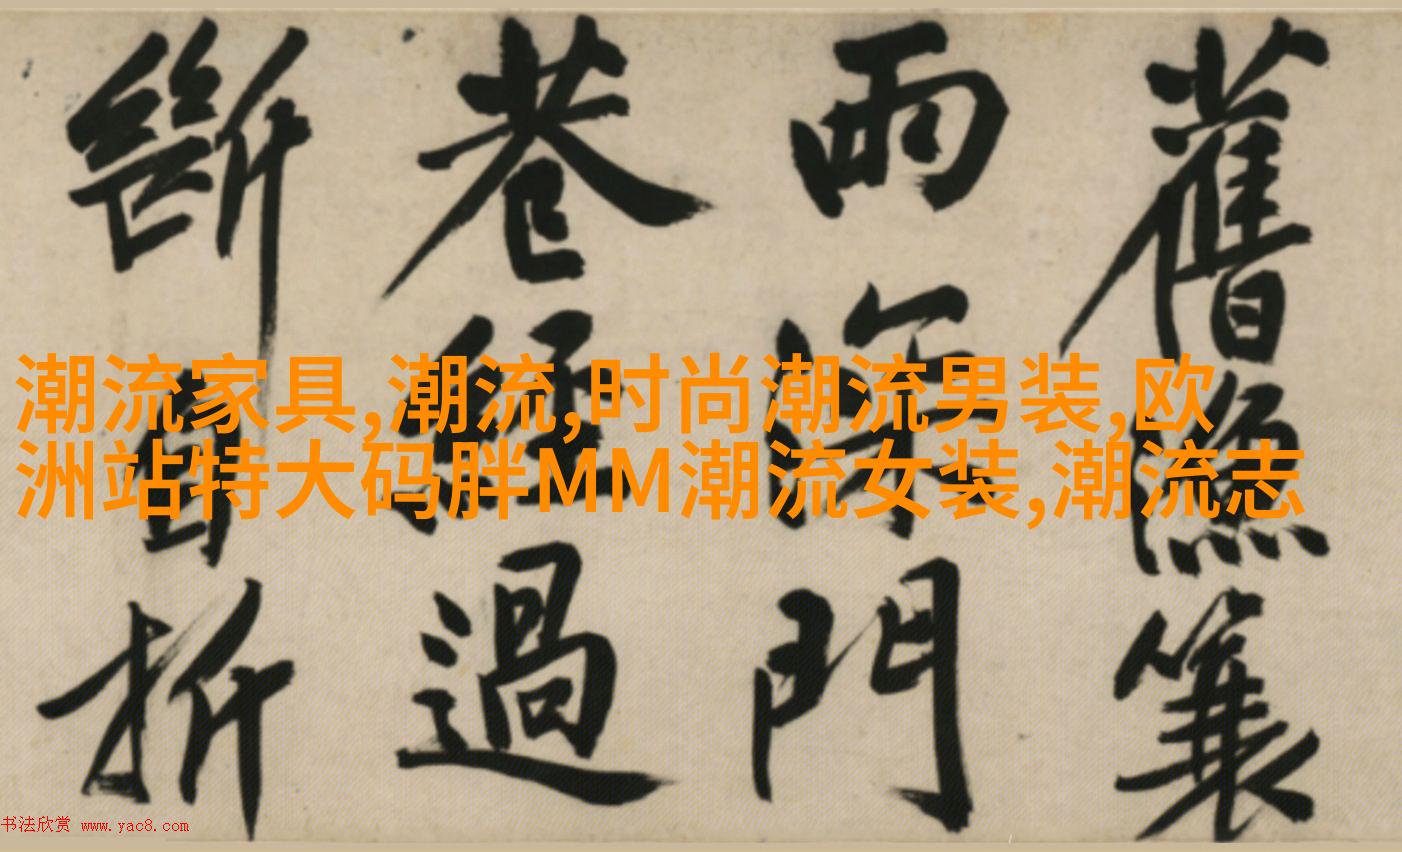 舊漁簑
雨深門
巷經過
斷折
潮流家具,潮流,时尚潮流男装,欧
洲站特大码胖MM潮流女装,潮流志
书法欣赏 www.yac8.com